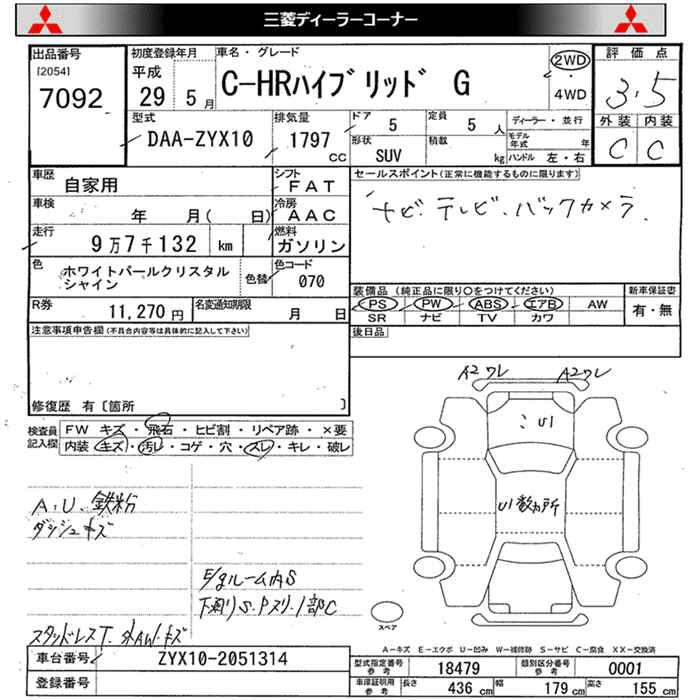 三菱ディーラーコーナー
出品番号 初度登録年月 車名・グレード 評価点
[2054] 平成 2WD
7092 29 5月 C-HRハイブリッド G ・ 3.5
4WD
型式 排気量 ドア 5 定員 5人 ディーラー・並行 外装 内装
DAA-ZYX10 1797 cc 形状 SUV 積載 kg モデル年式 年 C C
ハンドル 左・右
車歴 自家用 シフト FAT セールスポイント(正常に機能するものに限ります)
車検 年 月( 日) 冷房 AAC ナビ.テレビ.バックカメラ.
走行 9万7千132 km 燃料 ガソリン
色 ホワイトパールクリスタルシャイン 色替 色コード 070
装備品 (純正品に限り○をつけてください) 新車保証書
R券 11,270円 名変通知期限 月 日 PS PW ABS エアB AW 有・無
SR ナビ TV カワ
注意事項申告欄(不具合内容等は具体的に記入して下さい) 後日品
修復歴 有〔箇所 〕
A2ワレ A2ワレ
検査員記入欄 FW キズ・飛石・ヒビ割・リペア跡・×要
内装 キズ・汚レ・コゲ・穴・スレ・キレ・破レ
U1
U1数ヵ所
A.U.鉄粉
ダッシュキズ
E/gルーム内S
下廻りS.Pスリ.1部C
スタッドレスT.外AW.キズ
スペア
A-キズ E-エクボ U-凹み W-補修跡 S-サビ C-腐食 XX-交換済
車台番号 ZYX10-2051314 型式指定番号 参考 18479 類別区分番号 参考 0001
登録番号 車庫証明用 参考 長さ 436 cm 幅 179 cm 高さ 155 cm